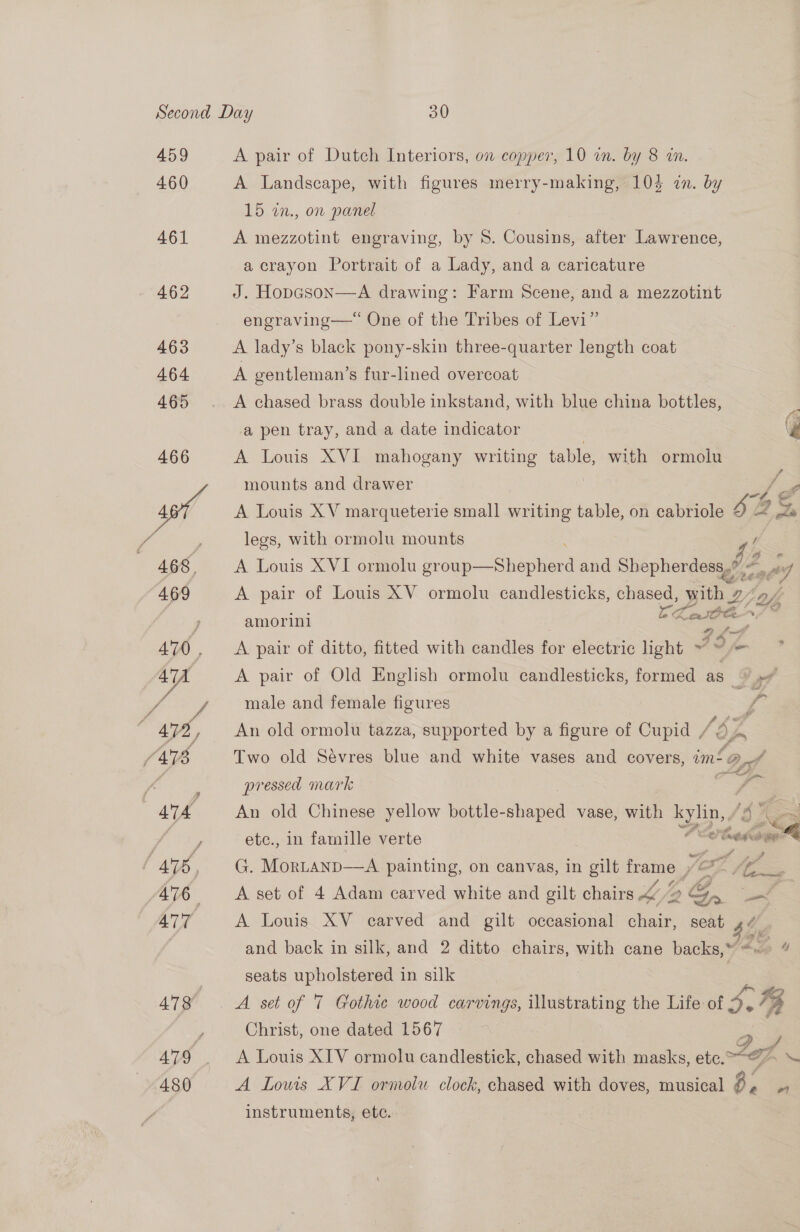 Second Day 30
459 A pair of Dutch Interiors, on copper, 10 in. by 8 in.
460 A Landscape, with figures merry-making, 10½ in. by
15 in., on panel
461 A mezzotint engraving, by S. Cousins, after Lawrence,
a crayon Portrait of a Lady, and a caricature
462 J. HODGSON—A drawing: Farm Scene, and a mezzotint
engraving—“One of the Tribes of Levi”
463 A lady’s black pony-skin three-quarter length coat
464 A gentleman’s fur-lined overcoat
465 A chased brass double inkstand, with blue china bottles,
a pen tray, and a date indicator
466 A Louis XVI mahogany writing table, with ormolu
mounts and drawer
467 A Louis XV marqueterie small writing table, on cabriole
legs, with ormolu mounts
468 A Louis XVI ormolu group—Shepherd and Shepherdess
469 A pair of Louis XV ormolu candlesticks, chased, with
amorini
470 A pair of ditto, fitted with candles for electric light
471 A pair of Old English ormolu candlesticks, formed as
male and female figures
472 An old ormolu tazza, supported by a figure of Cupid
473 Two old Sèvres blue and white vases and covers, im-
pressed mark
474 An old Chinese yellow bottle-shaped vase, with kylin,
etc., in famille verte
475 G. MORLAND—A painting, on canvas, in gilt frame
476 A set of 4 Adam carved white and gilt chairs
477 A Louis XV carved and gilt occasional chair, seat
and back in silk, and 2 ditto chairs, with cane backs,
seats upholstered in silk
478 A set of 7 Gothic wood carvings, illustrating the Life of
Christ, one dated 1567
479 A Louis XIV ormolu candlestick, chased with masks, etc.
480 A Louis XVI ormolu clock, chased with doves, musical
instruments, etc.